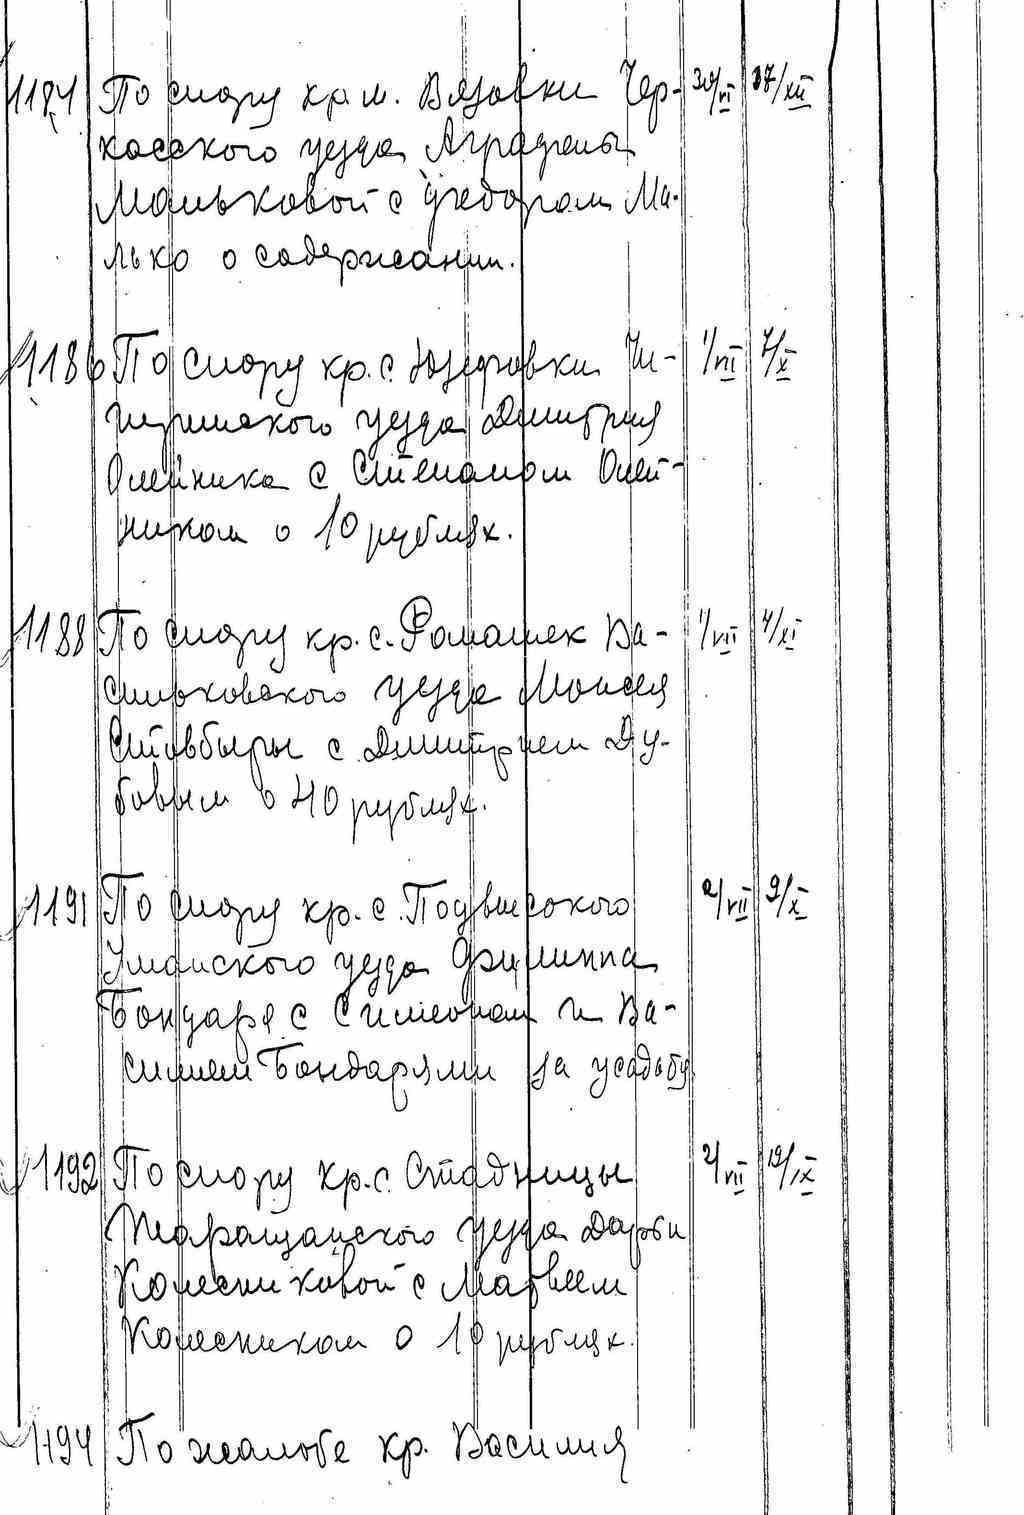 1184 По спору кр. м. Вязовки Чер- 30/VI 27/XII
касского уезда Аграфены
Мальковой с Федором Ма-
лько о содержании.
1186 По спору кр. с. Юзефовки Чи- 1/VII 7/X
гиринского уезда Дмитрия
Олейника с Степаном Олей-
ником о 10 рублях.
1188 По спору кр. с. Ромашек Ва- 1/VII 4/XI
сильковского уезда Моисея
Стовбыры с Дмитрием Ду-
бовым о 40 рублях.
1191 По спору кр. с. Подвысокого 2/VII 9/X
Уманского уезда Филиппа
Бондаря с Симеоном и Ва-
силием Бондарями за усадьбу
1192 По спору кр. с. Стадницы 2/VII 19/IX
Таращанского уезда Дарьи
Колесниковой с Матвеем
Колесником о 10 рублях.
1194 По жалобе кр. Василия